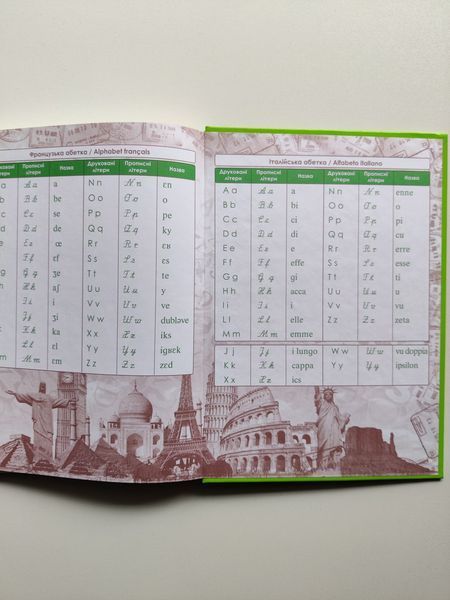 Французька абетка / Alphabet français
Друковані літери Прописні літери Назва Друковані літери Прописні літери Назва
a A a a N n N n ɛn
b B b be O o O o o
c C c se P p P p pe
d D d de Q q Q q ky
e E e œ R r R r ɛʁ
f F f ɛf S s S s ɛs
g G g ʒe T t T t te
h H h aʃ U u U u y
i I i i V v V v ve
j J j ʒi W w W w dubləve
k K k ka X x X x iks
l L l ɛl Y y Y y igʁɛk
m M m ɛm Z z Z z zɛd
Італійська абетка / Alfabeto italiano
Друковані літери Прописні літери Назва Друковані літери Прописні літери Назва
A a A a a N n N n enne
B b B b bi O o O o o
C c C c ci P p P p pi
D d D d di Q q Q q cu
E e E e e R r R r erre
F f F f effe S s S s esse
G g G g gi T t T t ti
H h H h acca U u U u u
I i I i i V v V v vu
L l L l elle Z z Z z zeta
M m M m emme
J j J j i lungo W w W w vu doppia
K k K k cappa Y y Y y ipsilon
X x X x ics